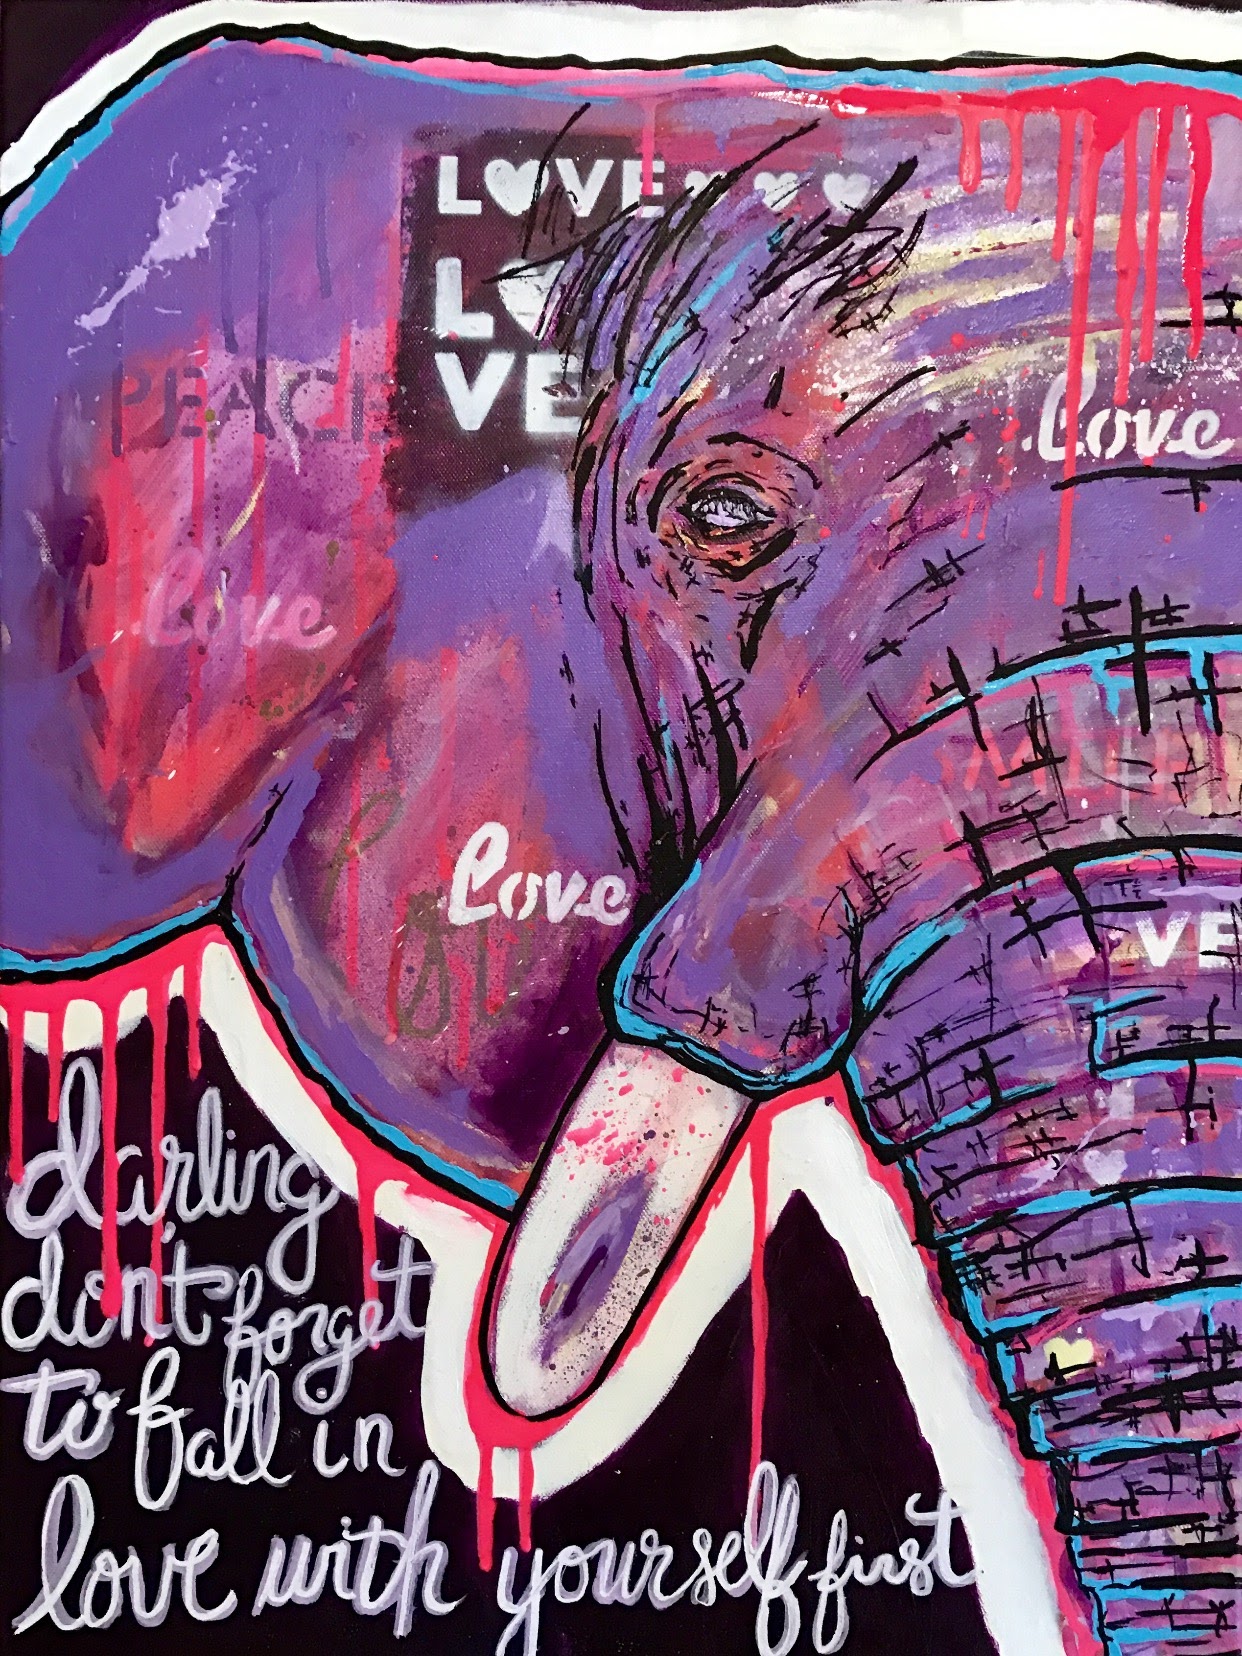 LOVE
LO
VE
PEACE
love
love
love
VE
darling
don't forget
to fall in
love with yourself first